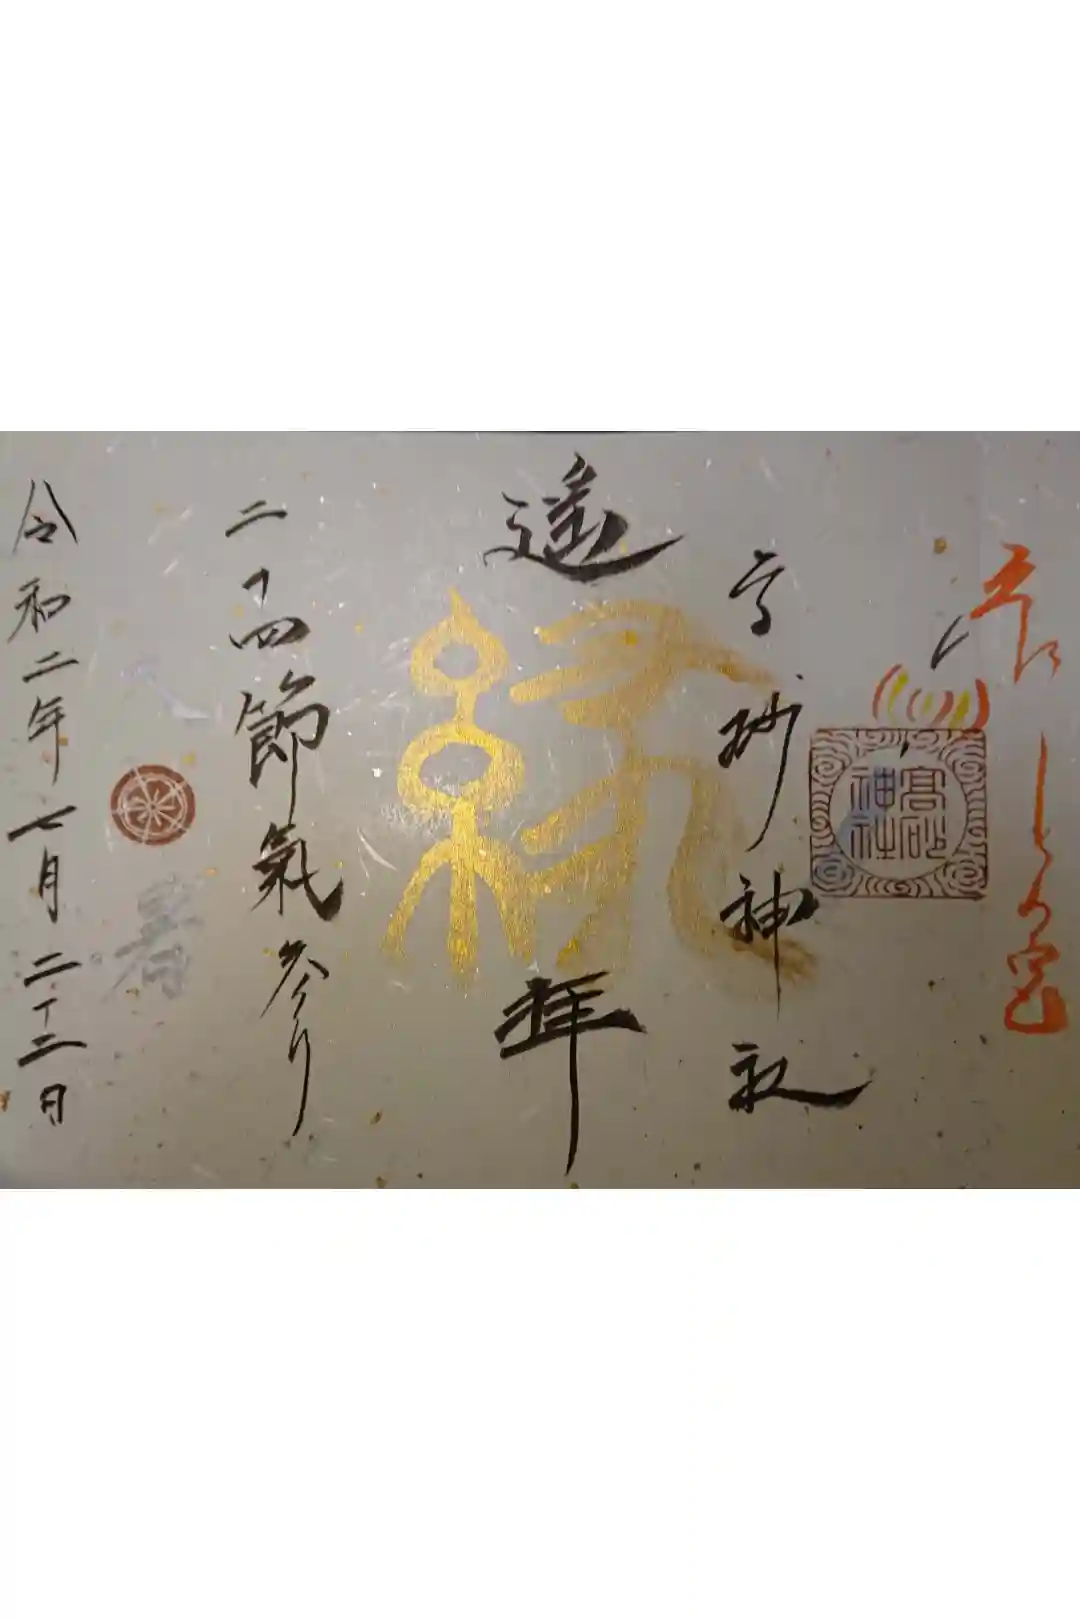 高砂神社
高砂神社
遥拝
縁
二十四節氣参り
暑
令和二年七月二十二日